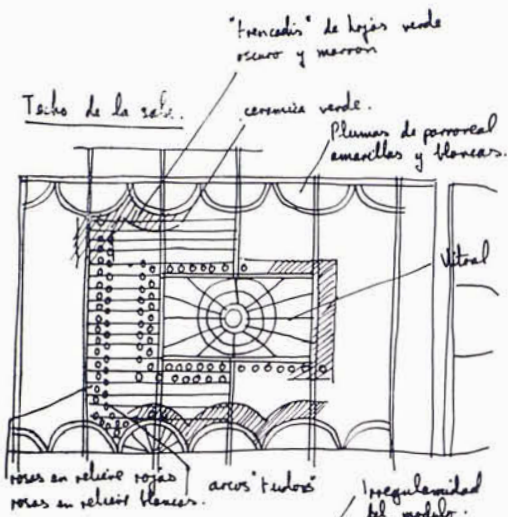 "trencadís" de hojas verde
oscuro y marrón
Techo de la sala.
ceramica verde.
Plumas de pavoreal
amarillas y blancas.
Vitral
rosas en relieve rojas
rosas en relieve blancas.
arcos "tudors"
Irregularidad
del modulo.